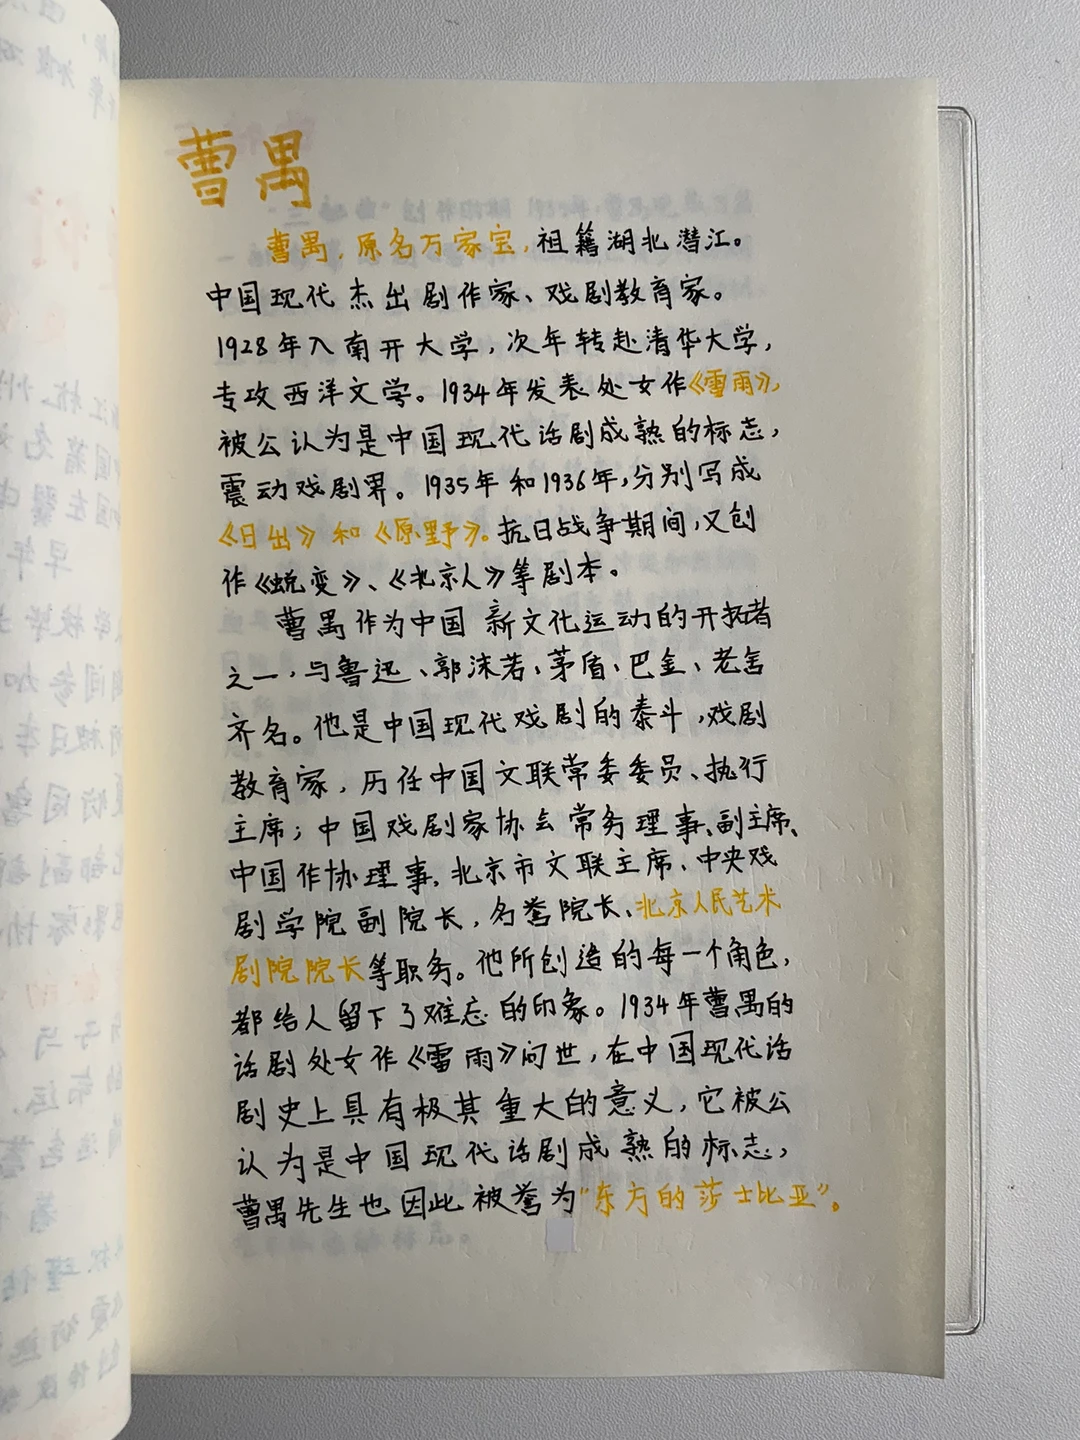 曹禺
曹禺，原名万家宝，祖籍湖北潜江。
中国现代杰出剧作家、戏剧教育家。
1928年入南开大学，次年转赴清华大学，
专攻西洋文学。1934年发表处女作《雷雨》，
被公认为是中国现代话剧成熟的标志，
震动戏剧界。1935年和1936年，分别写成
《日出》和《原野》。抗日战争期间，又创
作《蜕变》、《北京人》等剧本。
曹禺作为中国新文化运动的开拓者
之一，与鲁迅、郭沫若、茅盾、巴金、老舍
齐名。他是中国现代戏剧的泰斗，戏剧
教育家，历任中国文联常委委员、执行
主席；中国戏剧家协会常务理事、副主席、
中国作协理事，北京市文联主席、中央戏
剧学院副院长，名誉院长、北京人民艺术
剧院院长等职务。他所创造的每一个角色，
都给人留下了难忘的印象。1934年曹禺的
话剧处女作《雷雨》问世，在中国现代话
剧史上具有极其重大的意义，它被公
认为是中国现代话剧成熟的标志，
曹禺先生也因此被誉为“东方的莎士比亚”。